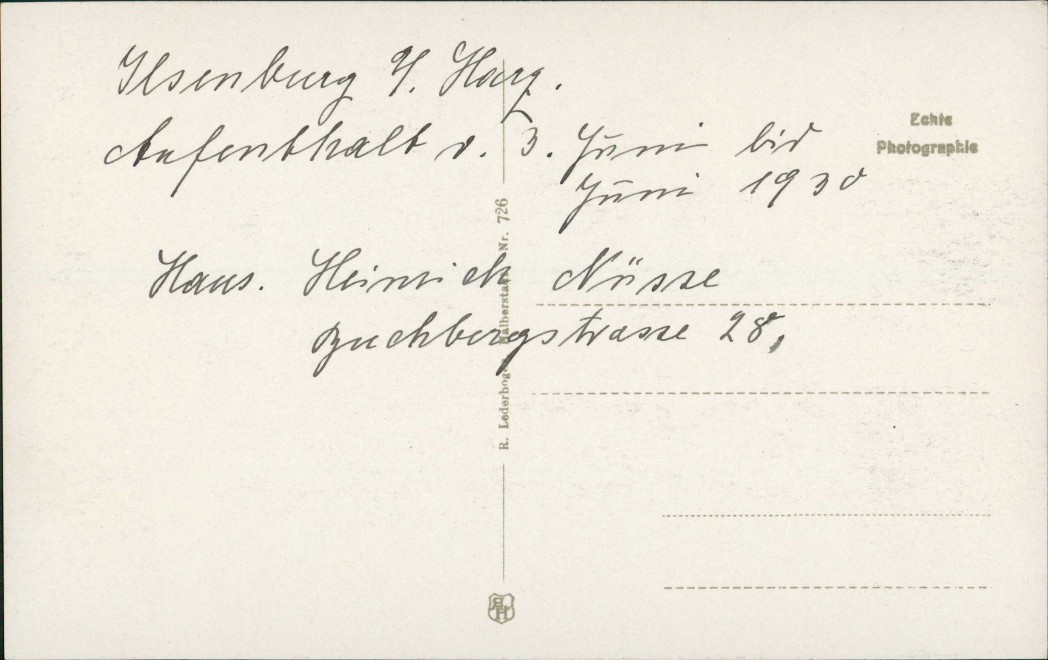 Ilsenburg a/. Harz.
Aufenthalt v. 3. Juni bis
Juni 1930
Echte
Photographie
Haus. Heinrich Nüsse
Buchbergstrasse 28,
R. Lederbogen, Halberstadt Nr. 726